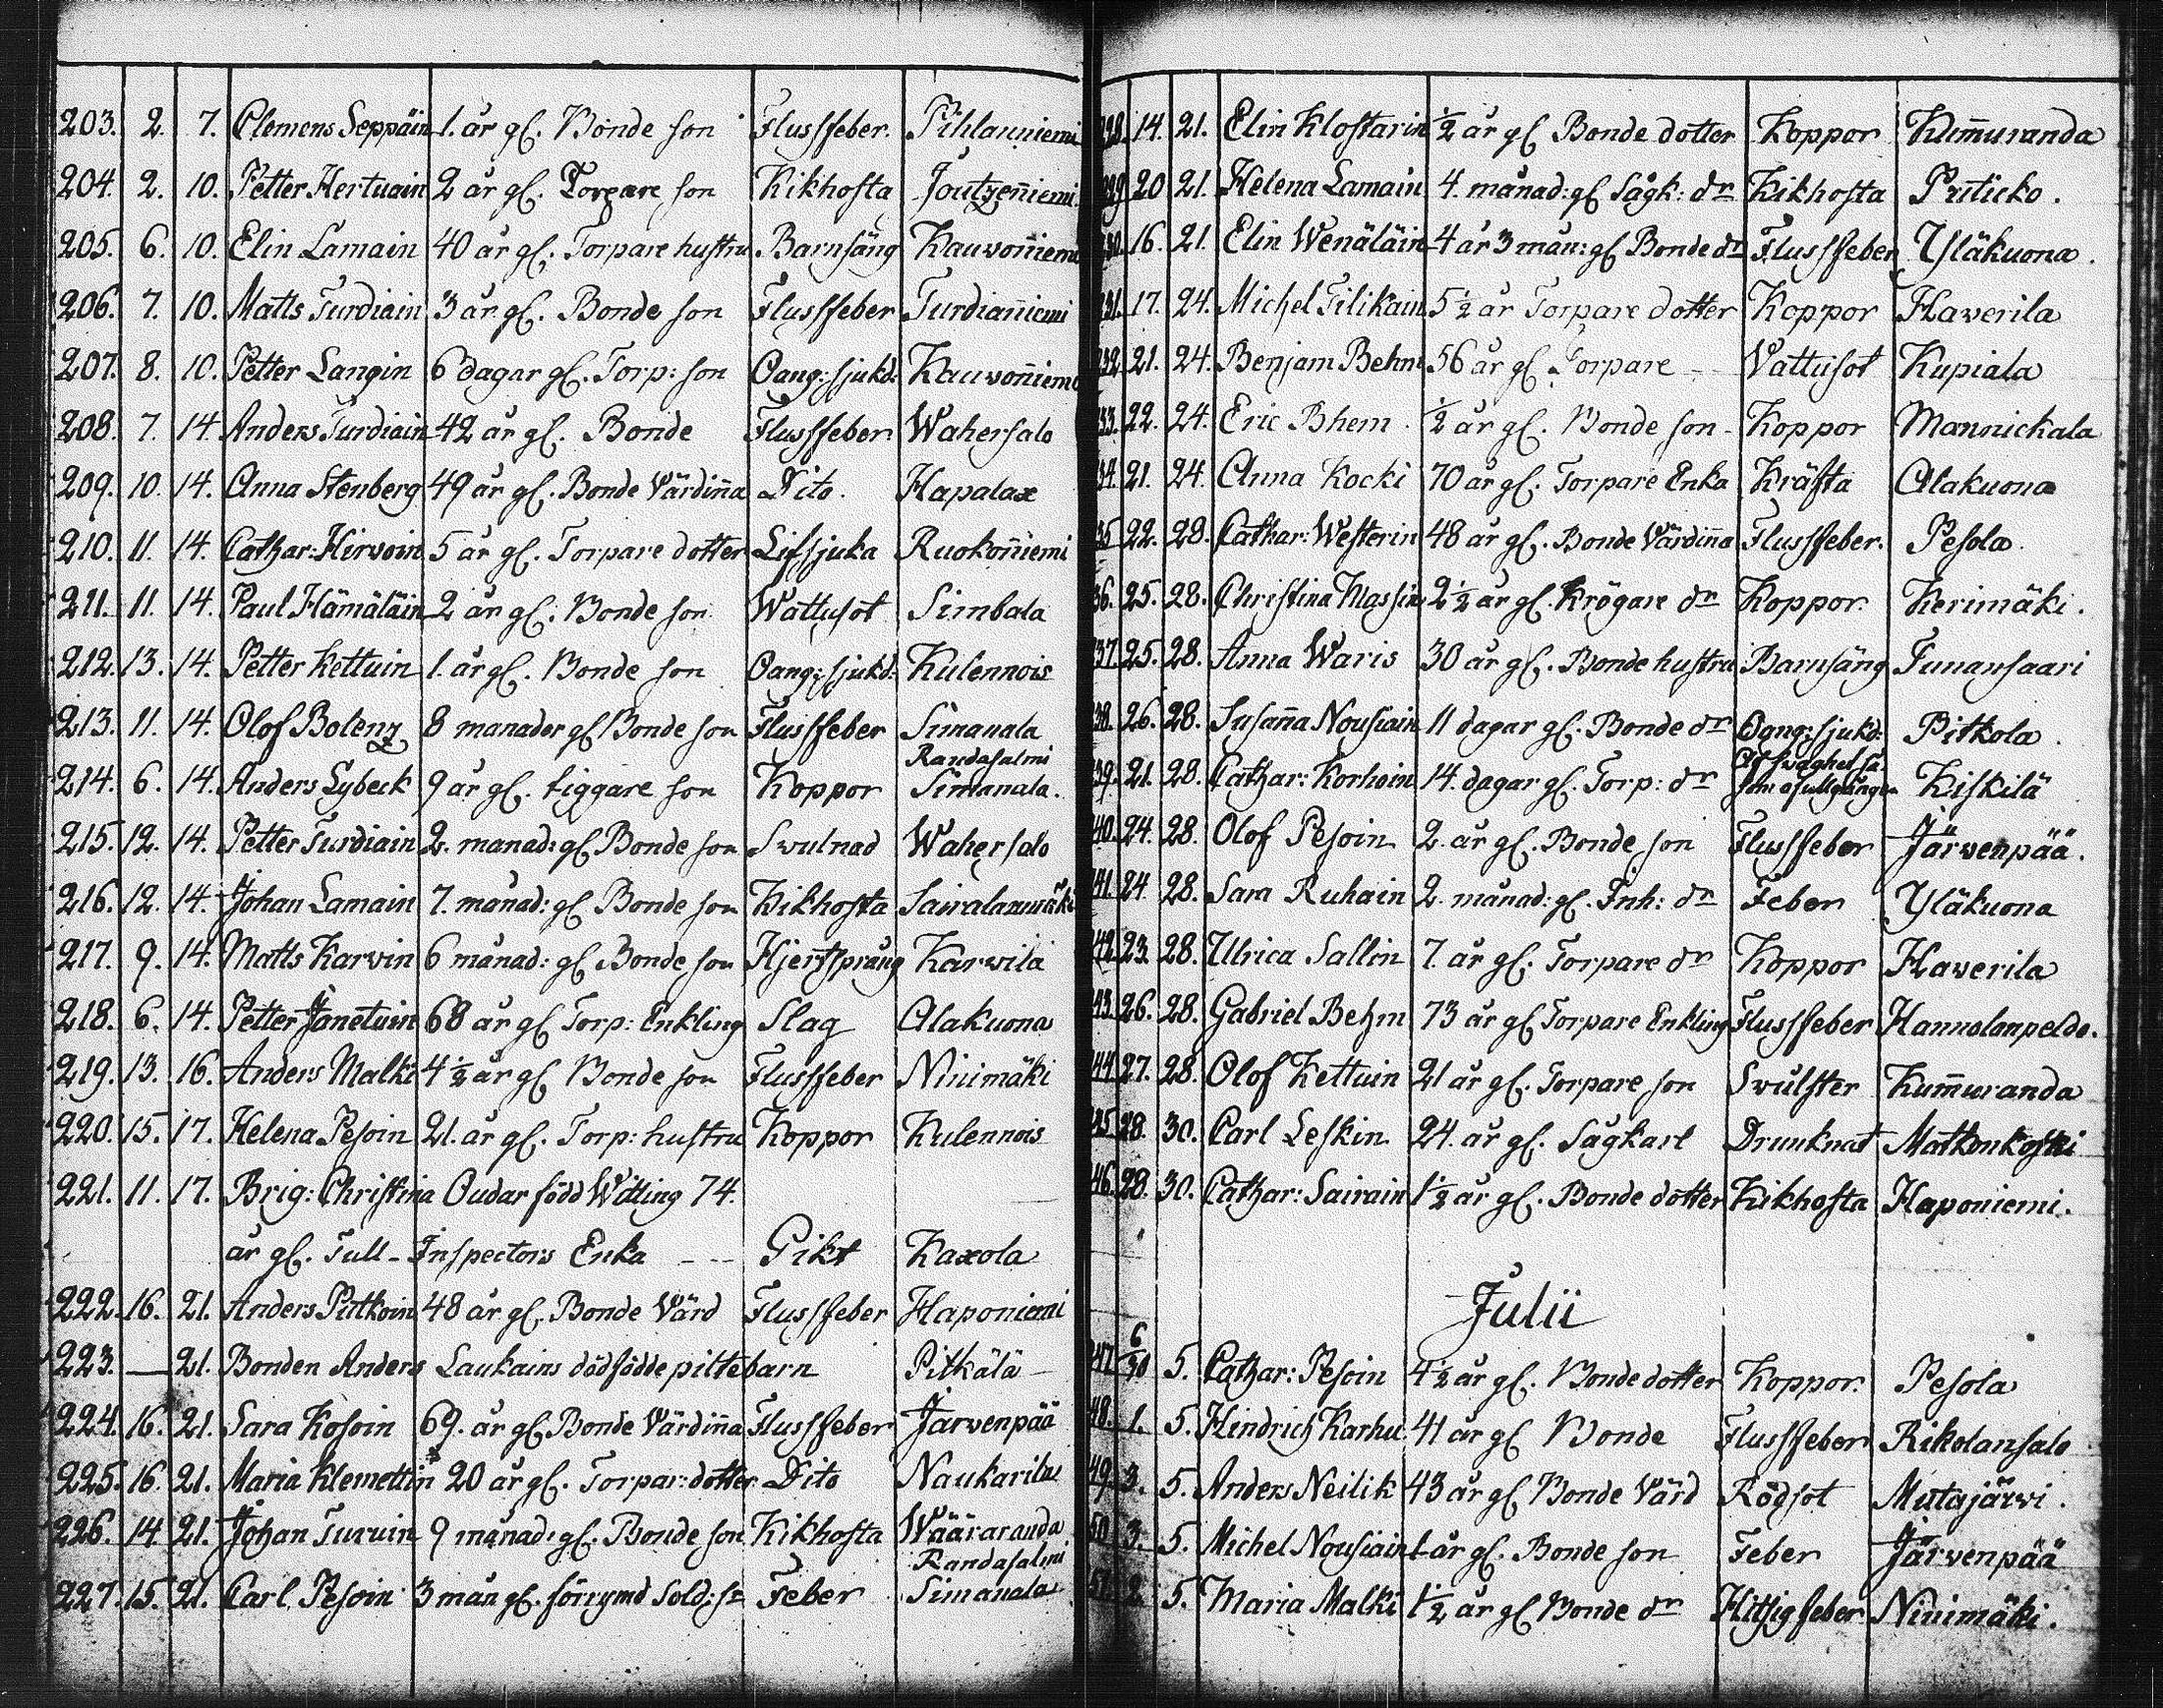 203. 2. 7. Clemens Seppäin 1. år gl. Bonde son Flussfeber. Pihlanniemi
204. 2. 10. Petter Hertuain 2 år gl. Torpare son Kikhosta Joutzenniemi
205. 6. 10. Elin Lamain 40 år gl. Torpare hustru Barnsäng Kauvonniemi
206. 7. 10. Matts Turdiain 3 år gl. Bonde son Flussfeber Turdianniemi
207. 8. 10. Petter Langin 6 dagar gl. Torp: son Oang: sjukd: Kauvonniemi
208. 7. 14. Anders Turdiain 42 år gl. Bonde Flussfeber Wahersalo
209. 10. 14. Anna Stenberg 49 år gl. Bonde Värdinna Dito. Hapalax
210. 11. 14. Cathar: Hirvoin 5 år gl. Torpare dotter Lifsjuka Ruokonniemi
211. 11. 14. Paul Hämäläin 2 år gl. Bonde son Wattusot Simbala
212. 13. 14. Petter Kettuin 1. år gl. Bonde son Oang: sjukd: Kulennois
213. 11. 14. Olof Bolenz 8 månader gl Bonde son Flussfeber Simanala
Randasalmi
214. 6. 14. Anders Lybeck 9 år gl. tiggare son Koppor Simanala.
215. 12. 14. Petter Turdiain 2. månad: gl Bonde son Swulnad Wahersalo
216. 12. 14. Johan Lamain 7. månad: gl Bonde son Kikhosta Sairalanmäki
217. 9. 14. Matts Karvin 6 månad: gl Bonde son Hjertsprång Karvila
218. 6. 14. Petter Janetuin 68 år gl Torp: Enkling Slag Alakuona
219. 13. 16. Anders Malki 4 1/2 år gl Bonde son Flussfeber Ninimäki
220. 15. 17. Helena Pesoin 21. år gl. Torp: hustru Koppor Kulennois
221. 11. 17. Brig: Christina Oudar född Witting 74.
år gl. Tull-Inspectors Enka - - - Gikt Kaxola
222. 16. 21. Anders Pitkoin 48 år gl. Bonde Värd Flussfeber Haponiemi
223. — 21. Bonden Anders Laukains dödfödde piltebarn Pitkälä
224. 16. 21. Sara Kosoin 69. år gl. Bonde Värdinna Flussfeber Jarvenpää
225. 16. 21. Maria Klemettin 20 år gl. Torpar: dotter Dito Naukarila
226. 14 21. Johan Turuin 9 månad: gl. Bonde son Kikhosta Wääraranda
Randasalmi
227. 15. 21. Carl Pesoin 3 mån gl. förrymd Sold: sn Feber Simanala
228. 14. 21. Elin Klostarin 1/2 år gl Bonde dotter Koppor Kummuranda
229 20 21. Helena Lamain 4. månad: gl Sågk: dr Kikhosta Puticko.
230. 16. 21. Elin Wenäläin 4 år 3 mån: gl Bonde dr Flussfeber Yläkuona.
231. 17. 24. Michel Tilikain 5 1/2 år Torpare dotter Koppor Haverila
232 21. 24. Benjam Behm 56 år gl. Torpare - - Vattusot Kupiala
233. 22. 24. Eric Bhem. 1/2 år gl. Bonde son - Koppor Mannickala
234. 21. 24. Anna Kocki 70 år gl. Torpare Enka Kräfta Alakuona
235 22. 28. Cathar: Westerin 48 år gl. Bonde Värdinna Flussfeber. Pesola.
236. 25. 28. Christina Massin 2 1/2 år gl. Krögare dr Koppor. Kerimäki.
237. 25. 28. Anna Waris 30 år gl. Bonde hustru Barnsäng Tunansaari
238. 26. 28. Susanna Nousiain 11 dagar gl. Bonde dr Oang: sjukd: Pitkola.
239. 21. 28. Cathar: Korhoin 14. dagar gl. Torp: dr Af swaghet så som ofullgången Kiskilä
240. 24. 28. Olof Pesoin 2. år gl. Bonde son Flussfeber Järvenpää.
241. 24 28. Sara Ruhain 2. månad: gl. Inh: dr Feber Yläkuona
242. 23. 28. Ulrica Sallin 7. år gl. Torpare dr Koppor Haverila
243. 26. 28. Gabriel Behm 73 år gl Torpare Enkling Flussfeber Hannolanpeldo.
244 27. 28. Olof Kettuin 21 år gl. Torpare son Swulster Kummuranda
245 28. 30. Carl Leskin 24. år gl. Sågkarl Drunknat Matkonkoski
246. 28. 30. Cathar: Sairain 1 1/2 år gl. Bonde dotter Kikhosta Haponiemi.
Julii
247 6/30 5. Cathar: Pesoin 4 1/2 år gl. Bonde dotter Koppor. Pesola
248. 1. 5. Hindrich Karhu 41 år gl Bonde Flussfeber Rikolansalo
249. 3. 5. Anders Neilik 43 år gl Bonde Värd Rödsot Mutajärvi.
250 3. 5. Michel Nousiain 1 år gl. Bonde son Feber Järvenpää
251. 2. 5. Maria Malki 1 1/2 år gl Bonde dr Hitsigfeber Ninimäki.